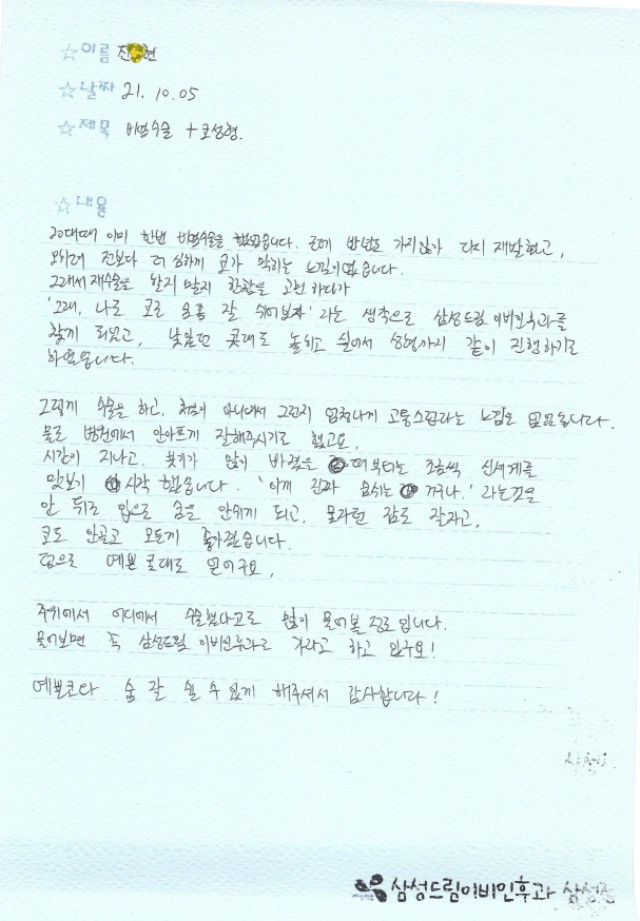 ☆이름 진 현
☆날짜 21. 10. 05
☆제목 비염수술 + 코성형.
☆내용
20대때 이미 한번 비염수술을 했었습니다. 근데 반년도 가지않아 다시 재발했고,
오히려 전보다 더 심하게 코가 막히는 느낌이었습니다.
그래서 재수술을 할지 말지 한참을 고민하다가
'그래, 나도 코로 숨좀 잘 쉬어보자' 라는 생각으로 삼성드림이비인후과를
찾게 되었고, 낮았던 콧대도 높히고 싶어서 성형까지 같이 진행하기로
하였습니다.
그렇게 수술을 하고, 처음이 아니어서 그런지 엄청나게 고통스럽다라는 느낌은 없었습니다.
물론 병원에서 안아프게 잘해주시기도 했고요.
시간이 지나고, 붓기가 많이 빠졌을 때부터는 조금씩 신세계를
맛보기 시작 했습니다. '이게 숨쉬는 거구나.' 라는것을
안 뒤로 입으로 숨을 안쉬게 되고, 모자란 잠도 잘자고,
코도 안골고 모든게 좋아졌습니다.
덤으로 예쁜 콧대도 얻어구요,
주위에서 어디에서 수술했냐고도 많이 물어볼 정도입니다.
물어보면 꼭 삼성드림이비인후과로 가라고 하고 있구요!
예쁜코와 숨 잘 쉴 수 있게 해주셔서 감사합니다!
삼성드림이비인후과